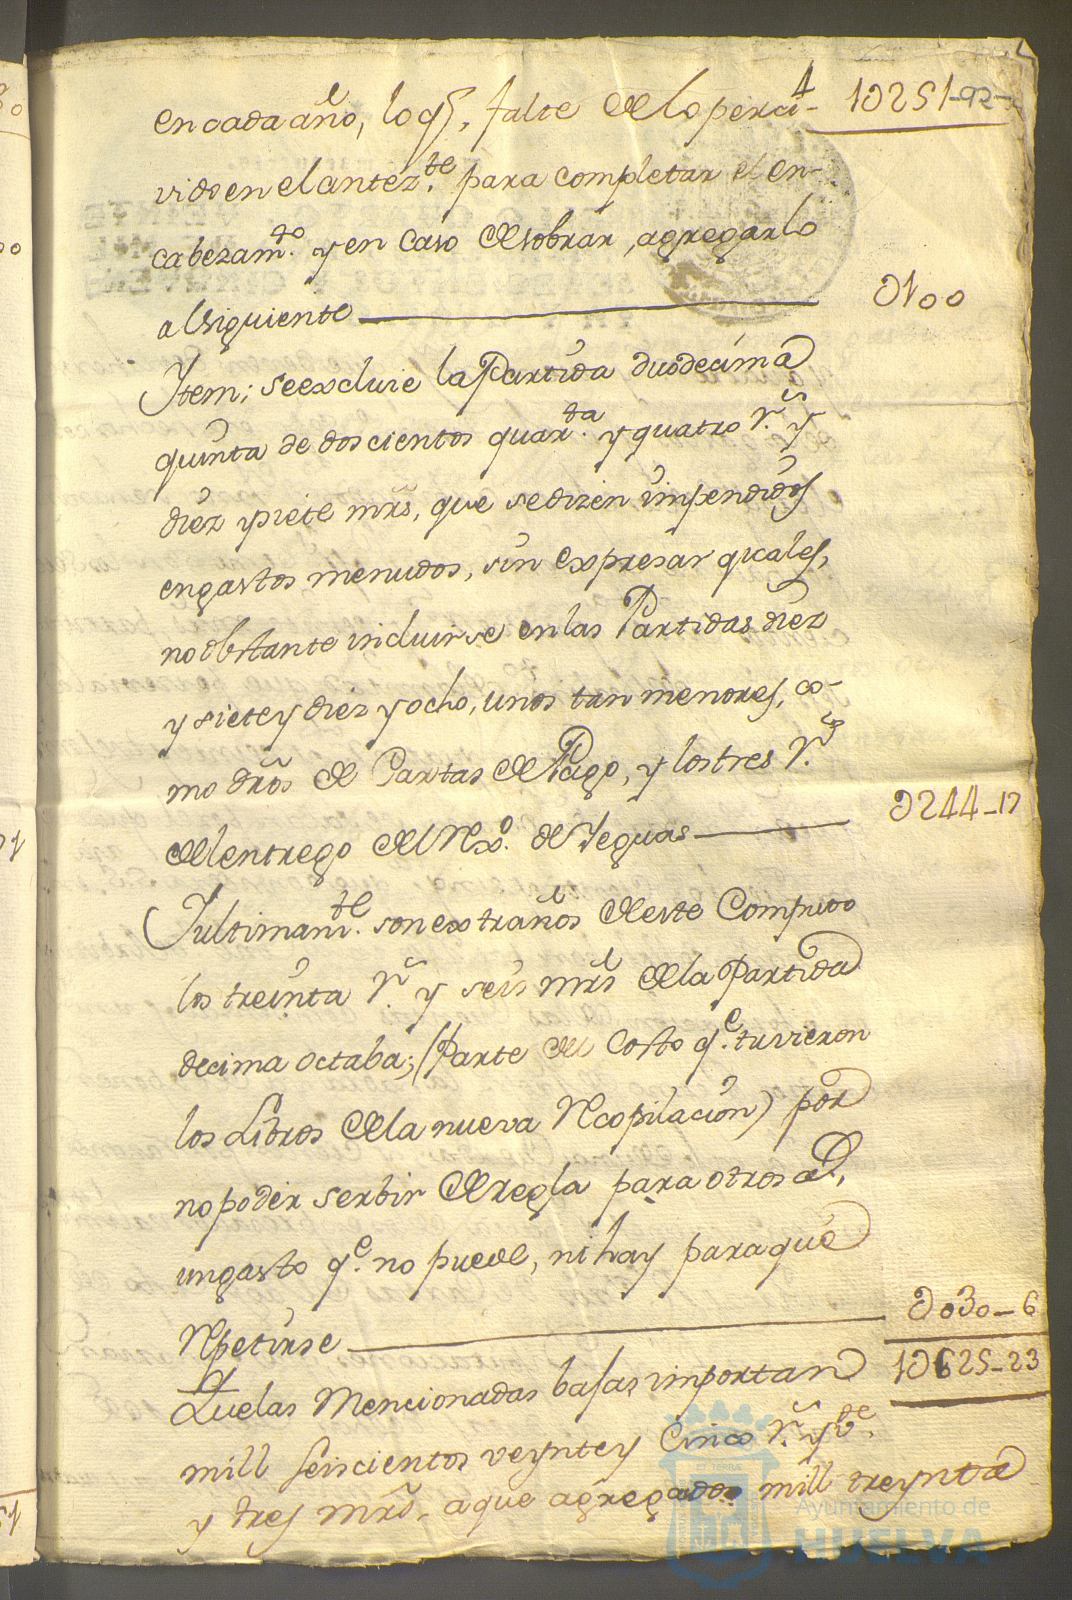 4
en cada año, lo q.̃ falte de lo perci- 1Ɔ251-92-
vido en el antez.te para completar el en-
cabezam.to y en caso de sobrar, agregarlo
al siguiente — Ɔ100
Item; se excluie la Partida duodecima
quinta de doscientos quar.ta y quatro r.s y
diez y siete mrs, que se dizen impendidos
en gastos menudos, sin expresar quales,
no obstante incluirse en las Partidas diez
y siete y diez y ocho, unos tan menores, co-
mo dros de Cartas de Pago, y los tres r.s
del entrego del Rex.o de Yeguas — Ɔ244-17
Y ultimam.te son extraños de este Computo
los treinta r.s y seis mrs de la Partida
decima octaba; (Parte del Costo q.e tuvieron
los Libros de la nueva Recopilacion) por
no poder serbir de regla para otros a.s,
un gasto q.e no puede, ni hay para que
Repetirse — Ɔ030-6
Que las Mencionadas bajas importan 1Ɔ625-23
mill seiscientos veynte y Cinco r.s y v.te
y tres mrs, a que agregados mill treynta
Ayuntamiento de
HUELVA